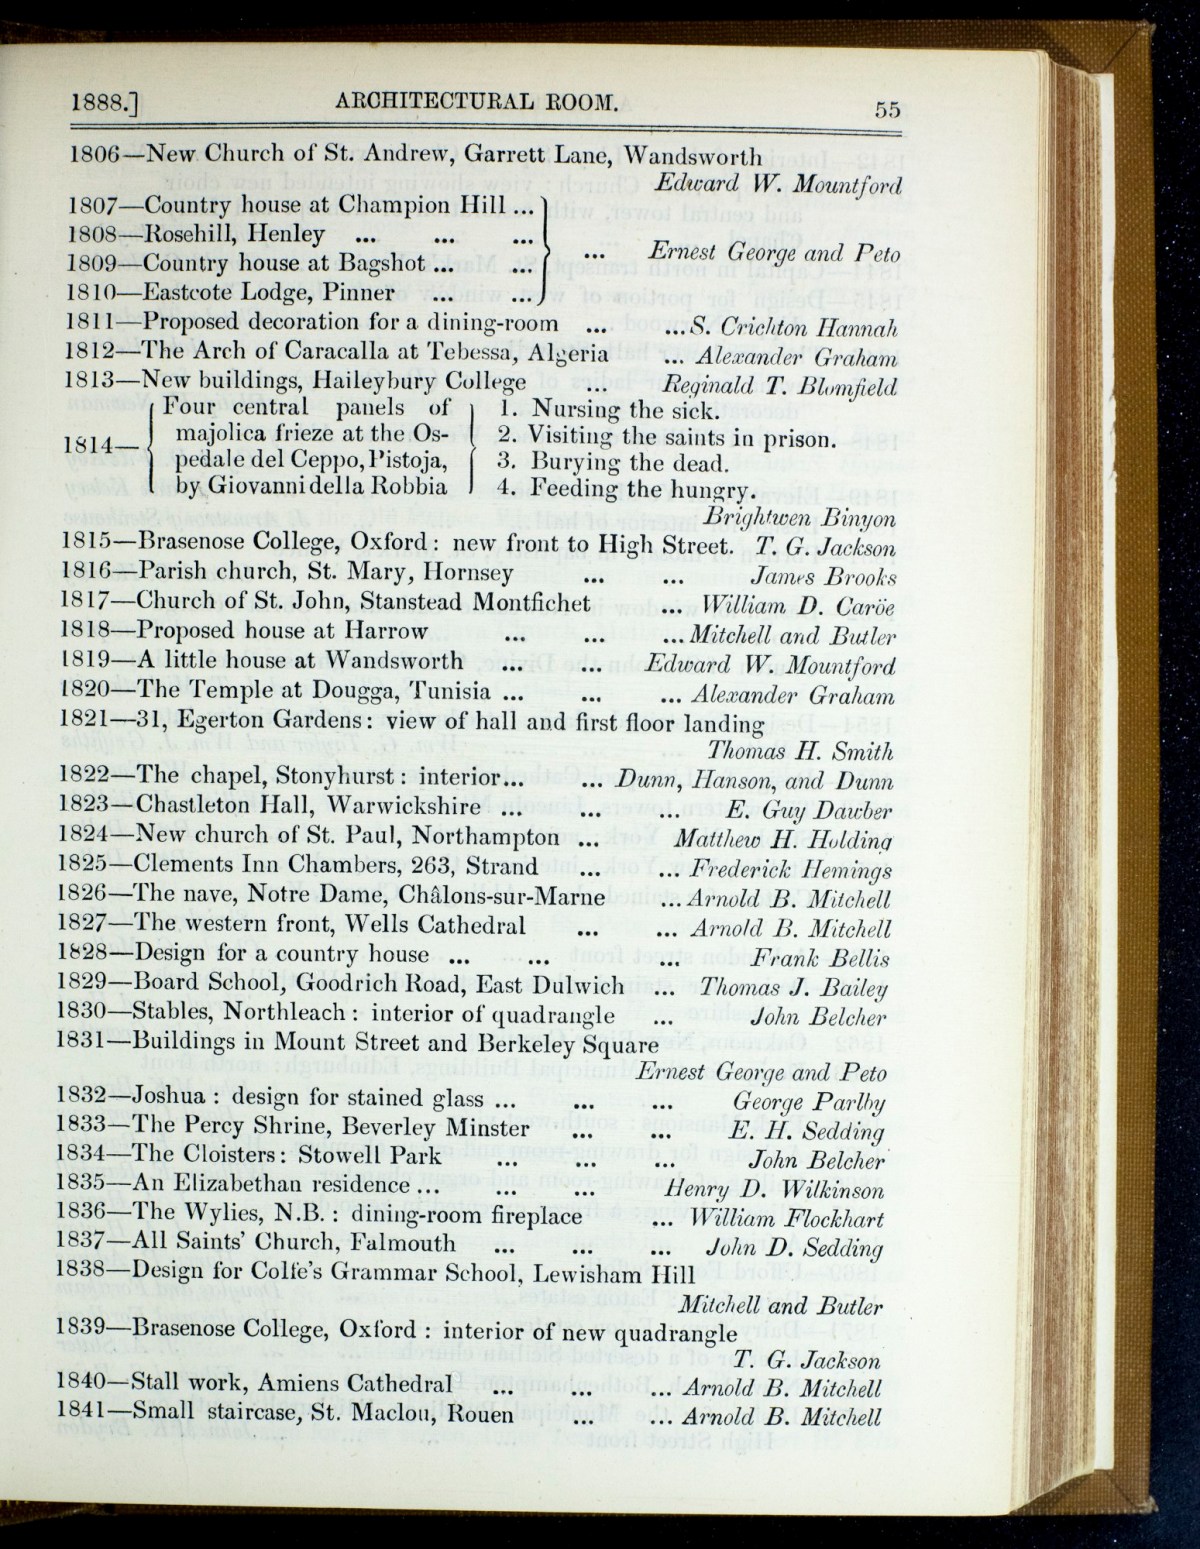 1888.] ARCHITECTURAL ROOM. 55
1806—New Church of St. Andrew, Garrett Lane, Wandsworth
Edward W. Mountford
1807—Country house at Champion Hill ...
1808—Rosehill, Henley ... ... ...
1809—Country house at Bagshot ... ...
1810—Eastcote Lodge, Pinner ... ...
... Ernest George and Peto
1811—Proposed decoration for a dining-room ... ... S. Crichton Hannah
1812—The Arch of Caracalla at Tebessa, Algeria ... Alexander Graham
1813—New buildings, Haileybury College ... Reginald T. Blomfield
1814—
Four central panels of
majolica frieze at the Os-
pedale del Ceppo, Pistoja,
by Giovanni della Robbia
1. Nursing the sick.
2. Visiting the saints in prison.
3. Burying the dead.
4. Feeding the hungry.
Brightwen Binyon
1815—Brasenose College, Oxford: new front to High Street. T. G. Jackson
1816—Parish church, St. Mary, Hornsey ... ... James Brooks
1817—Church of St. John, Stanstead Montfichet ... William D. Caröe
1818—Proposed house at Harrow ... ... ... Mitchell and Butler
1819—A little house at Wandsworth ... ... Edward W. Mountford
1820—The Temple at Dougga, Tunisia ... ... ... Alexander Graham
1821—31, Egerton Gardens: view of hall and first floor landing
Thomas H. Smith
1822—The chapel, Stonyhurst: interior... ... Dunn, Hanson, and Dunn
1823—Chastleton Hall, Warwickshire ... ... ... E. Guy Dawber
1824—New church of St. Paul, Northampton ... Matthew H. Holding
1825—Clements Inn Chambers, 263, Strand ... ... Frederick Hemings
1826—The nave, Notre Dame, Châlons-sur-Marne ... Arnold B. Mitchell
1827—The western front, Wells Cathedral ... ... Arnold B. Mitchell
1828—Design for a country house ... ... ... Frank Bellis
1829—Board School, Goodrich Road, East Dulwich ... Thomas J. Bailey
1830—Stables, Northleach: interior of quadrangle ... John Belcher
1831—Buildings in Mount Street and Berkeley Square
Ernest George and Peto
1832—Joshua: design for stained glass ... ... ... George Parlby
1833—The Percy Shrine, Beverley Minster ... ... E. H. Sedding
1834—The Cloisters: Stowell Park ... ... ... John Belcher
1835—An Elizabethan residence ... ... ... Henry D. Wilkinson
1836—The Wylies, N.B.: dining-room fireplace ... William Flockhart
1837—All Saints' Church, Falmouth ... ... ... John D. Sedding
1838—Design for Colfe's Grammar School, Lewisham Hill
Mitchell and Butler
1839—Brasenose College, Oxford: interior of new quadrangle
T. G. Jackson
1840—Stall work, Amiens Cathedral ... ... ... Arnold B. Mitchell
1841—Small staircase, St. Maclou, Rouen ... ... Arnold B. Mitchell